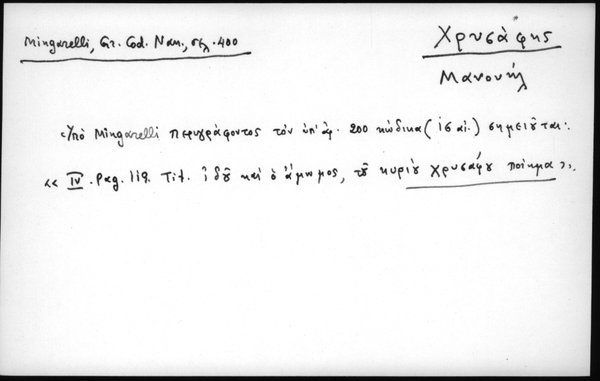 Mingarelli, Gr. Cod. Nan., σελ. 400
Χρυσάφης
Μανουήλ
Ὑπὸ Mingarelli περιγράφοντος τὸν ὑπ' ἀρ. 200 κώδικα (ις αἰ.) σημειοῦται:
«IV. pag. 119. Tit. ἰδοῦ καὶ ὁ ἄμωμος, τοῦ κυρίου Χρυσάφου ποίημα».